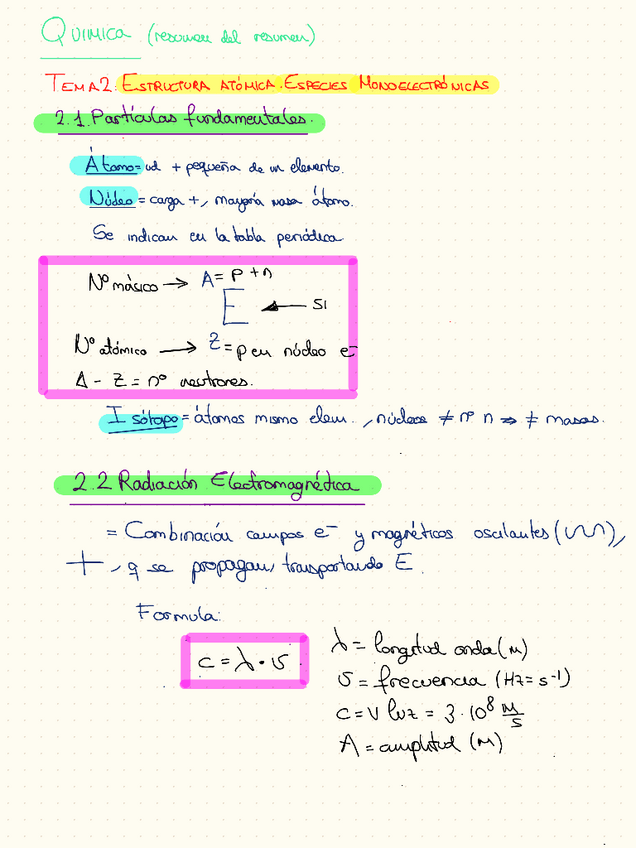 QUIMICA (resumen del resumen)
TEMA 2: ESTRUCTURA ATÓMICA. ESPECIES MONOELECTRÓNICAS
2.1. Partículas fundamentales.
Átomo = ud + pequeña de un elemento.
Núcleo = carga +, mayoría masa átomo.
Se indican en la tabla periódica
Nº másico → A = p + n
E ← SI
Nº atómico → Z = p en núcleo e-
A - Z = nº neutrones.
Isótopo = átomos mismo elem., núcleos ≠ nº n ⇒ ≠ masas.
2.2 Radiación Electromagnética
= Combinación campos e- y magnéticos oscilantes (),
+, q se propagan, transportando E.
Formula:
c = λ · υ
λ = longitud onda (M)
υ = frecuencia (Hz = s-1)
c = V luz = 3·10⁸ M/s
A = amplitud (M)